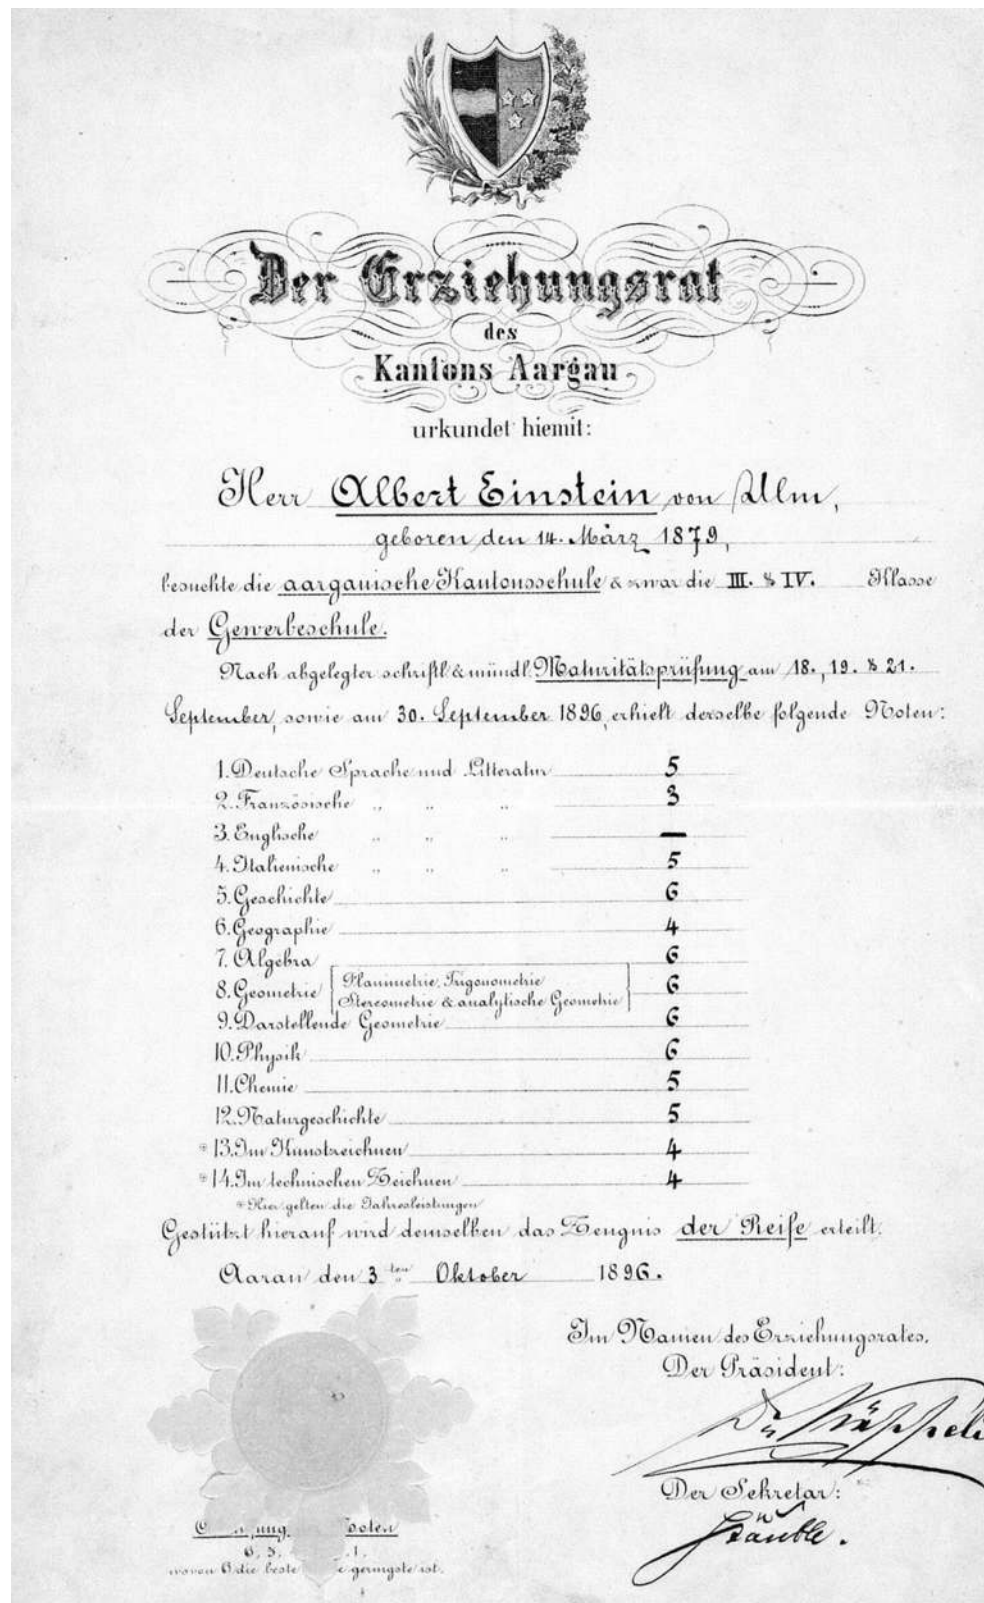 Der Erziehungsrat
des
Kantons Aargau
urkundet hiemit:
Herr Albert Einstein von Ulm,
geboren den 14. März 1879,
besuchte die aargauische Kantonsschule & zwar die III. & IV. Klasse
der Gewerbeschule.
Nach abgelegter schriftl. & mündl. Maturitätsprüfung am 18., 19. & 21.
September, sowie am 30. September 1896, erhielt derselbe folgende Noten:
1. Deutsche Sprache und Litteratur 5
2. Französische „ „ „ 3
3. Englische „ „ „ —
4. Italienische „ „ „ 5
5. Geschichte 6
6. Geographie 4
7. Algebra 6
8. Geometrie { Planimetrie, Trigonometrie
Stereometrie & analytische Geometrie } 6
9. Darstellende Geometrie 6
10. Physik 6
11. Chemie 5
12. Naturgeschichte 5
* 13. Im Kunstzeichnen 4
* 14. Im technischen Zeichnen 4
* Hier gelten die Jahresleistungen
Gestützt hierauf wird demselben das Zeugnis der Reife erteilt.
Aarau den 3ten Oktober 1896.
Im Namen des Erziehungsrates,
Der Präsident:
Der Sekretär:
Stäuble.
6, 5, 1.
wovon 6 die beste geringste ist.